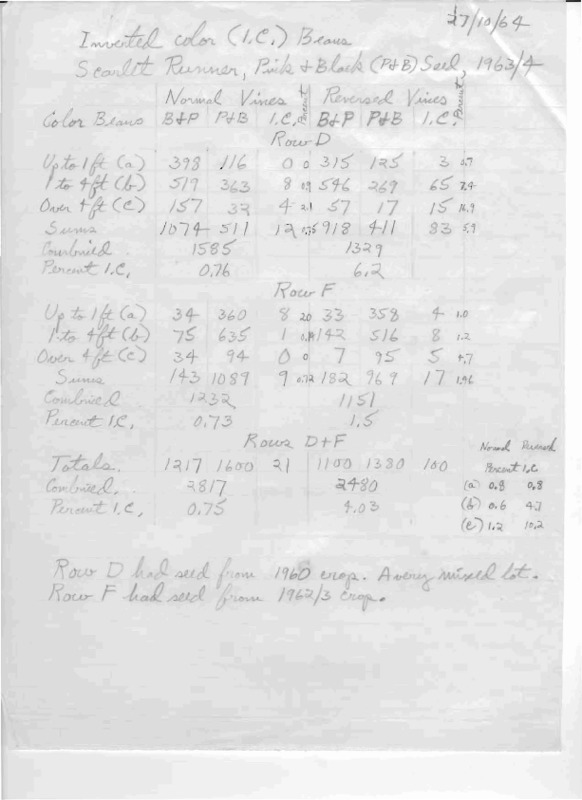 27/10/64
Inverted color (I.C.) Beans
Scarlet Runner, Pink & Black (P&B) Seed, 1963/4
Normal Vines Percent Reversed Vines Percent
Color Beans B&P P&B I.C. B&P P&B I.C.
Row D
Up to 1 ft (a) 398 116 0 0 315 125 3 0.7
1 to 4 ft (b) 519 363 8 0.9 546 269 65 7.4
Over 4 ft (c) 157 32 4 2.1 57 17 15 16.9
Sums 1074 511 12 0.75 918 411 83 5.9
Combined 1585 1329
Percent I.C. 0.76 6.2
Row F
Up to 1 ft (a) 34 360 8 20 33 358 4 1.0
1 to 4 ft (b) 75 635 1 0.14 142 516 8 1.2
Over 4 ft (c) 34 94 0 0 7 95 5 4.7
Sums 143 1089 9 0.72 182 969 17 1.46
Combined 1232 1151
Percent I.C. 0.73 1.5
Rows D+F
Normal Reversed
Totals. 1217 1600 21 1100 1380 100 Percent I.C
Combined. 2817 2480 (a) 0.8 0.8
Percent I.C. 0.75 4.03 (b) 0.6 4.7
(c) 1.2 10.2
Row D had seed from 1960 crop. A very mixed lot.
Row F had seed from 1962/3 crop.